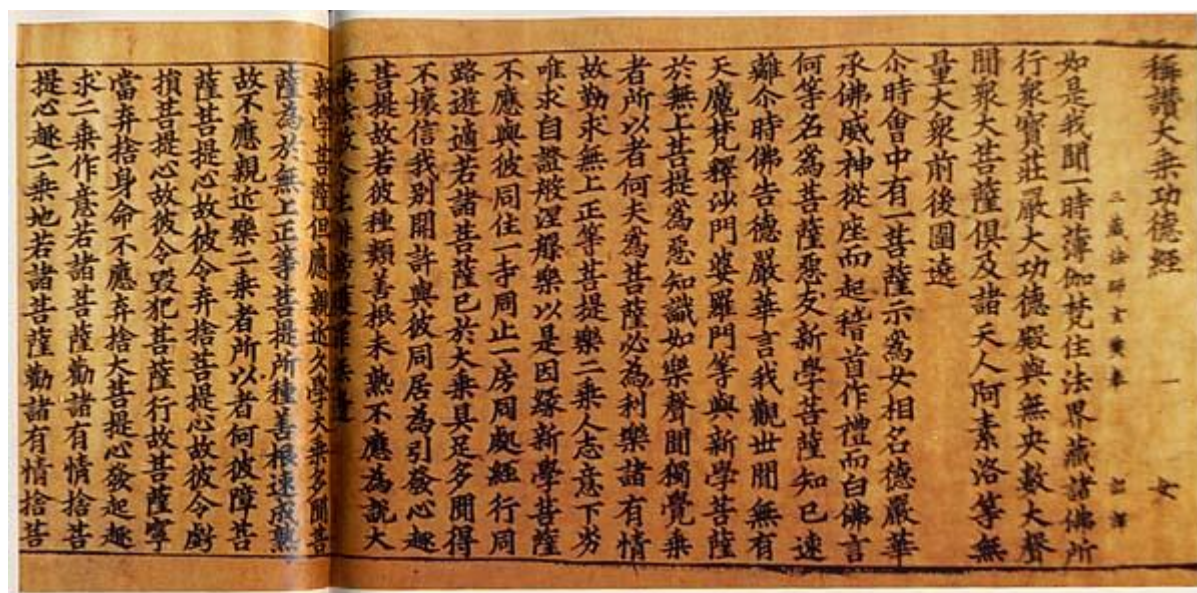 稱讚大乘功德經 一 女
三藏法師玄奘奉 詔譯
如是我聞一時薄伽梵住法界藏諸佛所
行衆寶莊嚴大功德殿與無央數大聲
聞衆大菩薩俱及諸天人阿素洛等無
量大衆前後圍遶
尒時會中有一菩薩示爲女相名德嚴華
承佛威神從座而起稽首作禮而白佛言
何等名爲菩薩惡友新學菩薩知已速
離尒時佛告德嚴華言我觀世間無有
天魔梵釋沙門婆羅門等與新學菩薩
於無上菩提爲惡知識如樂聲聞獨覺乗
者所以者何夫爲菩薩必為利樂諸有情
故勤求無上正等菩提樂二乗人志意下劣
唯求自證般涅槃樂以是因縁新學菩薩
不應與彼同住一寺同止一房同處經行同
路遊適若諸菩薩已於大乗具足多聞得
不壞信我别開許與彼同居為引發心趣
菩提故若彼種類善根未熟不應為説大
新學菩薩但應親近久學大乗多聞菩
薩為於無上正等菩提所種善根速成熟
故不應親近樂二乗者所以者何彼障菩
薩菩提心故彼令弃捨菩提心故彼令虧
損菩提心故彼令毀犯菩薩行故菩薩寧
當弃捨身命不應弃捨大菩提心發起趣
求二乗作意若諸菩薩勸諸有情捨菩
提心趣二乗地若諸菩薩勸諸有情捨菩